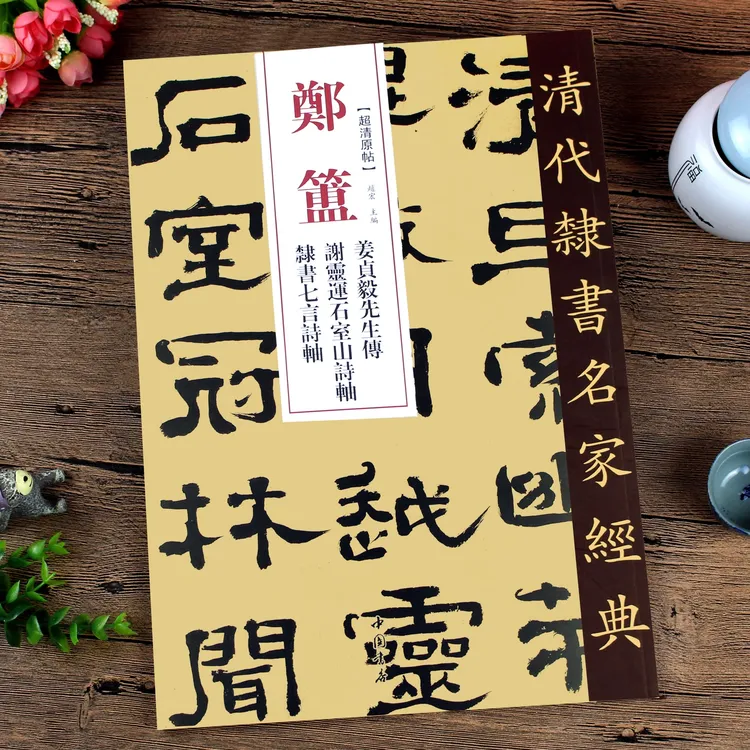 清代隸書名家經典
【超清原帖】
趙宏 主編
鄭簠
姜貞毅先生傳
謝靈運石室山詩軸
隸書七言詩軸
清旦索
越靈
石室冠林聞
中国書店